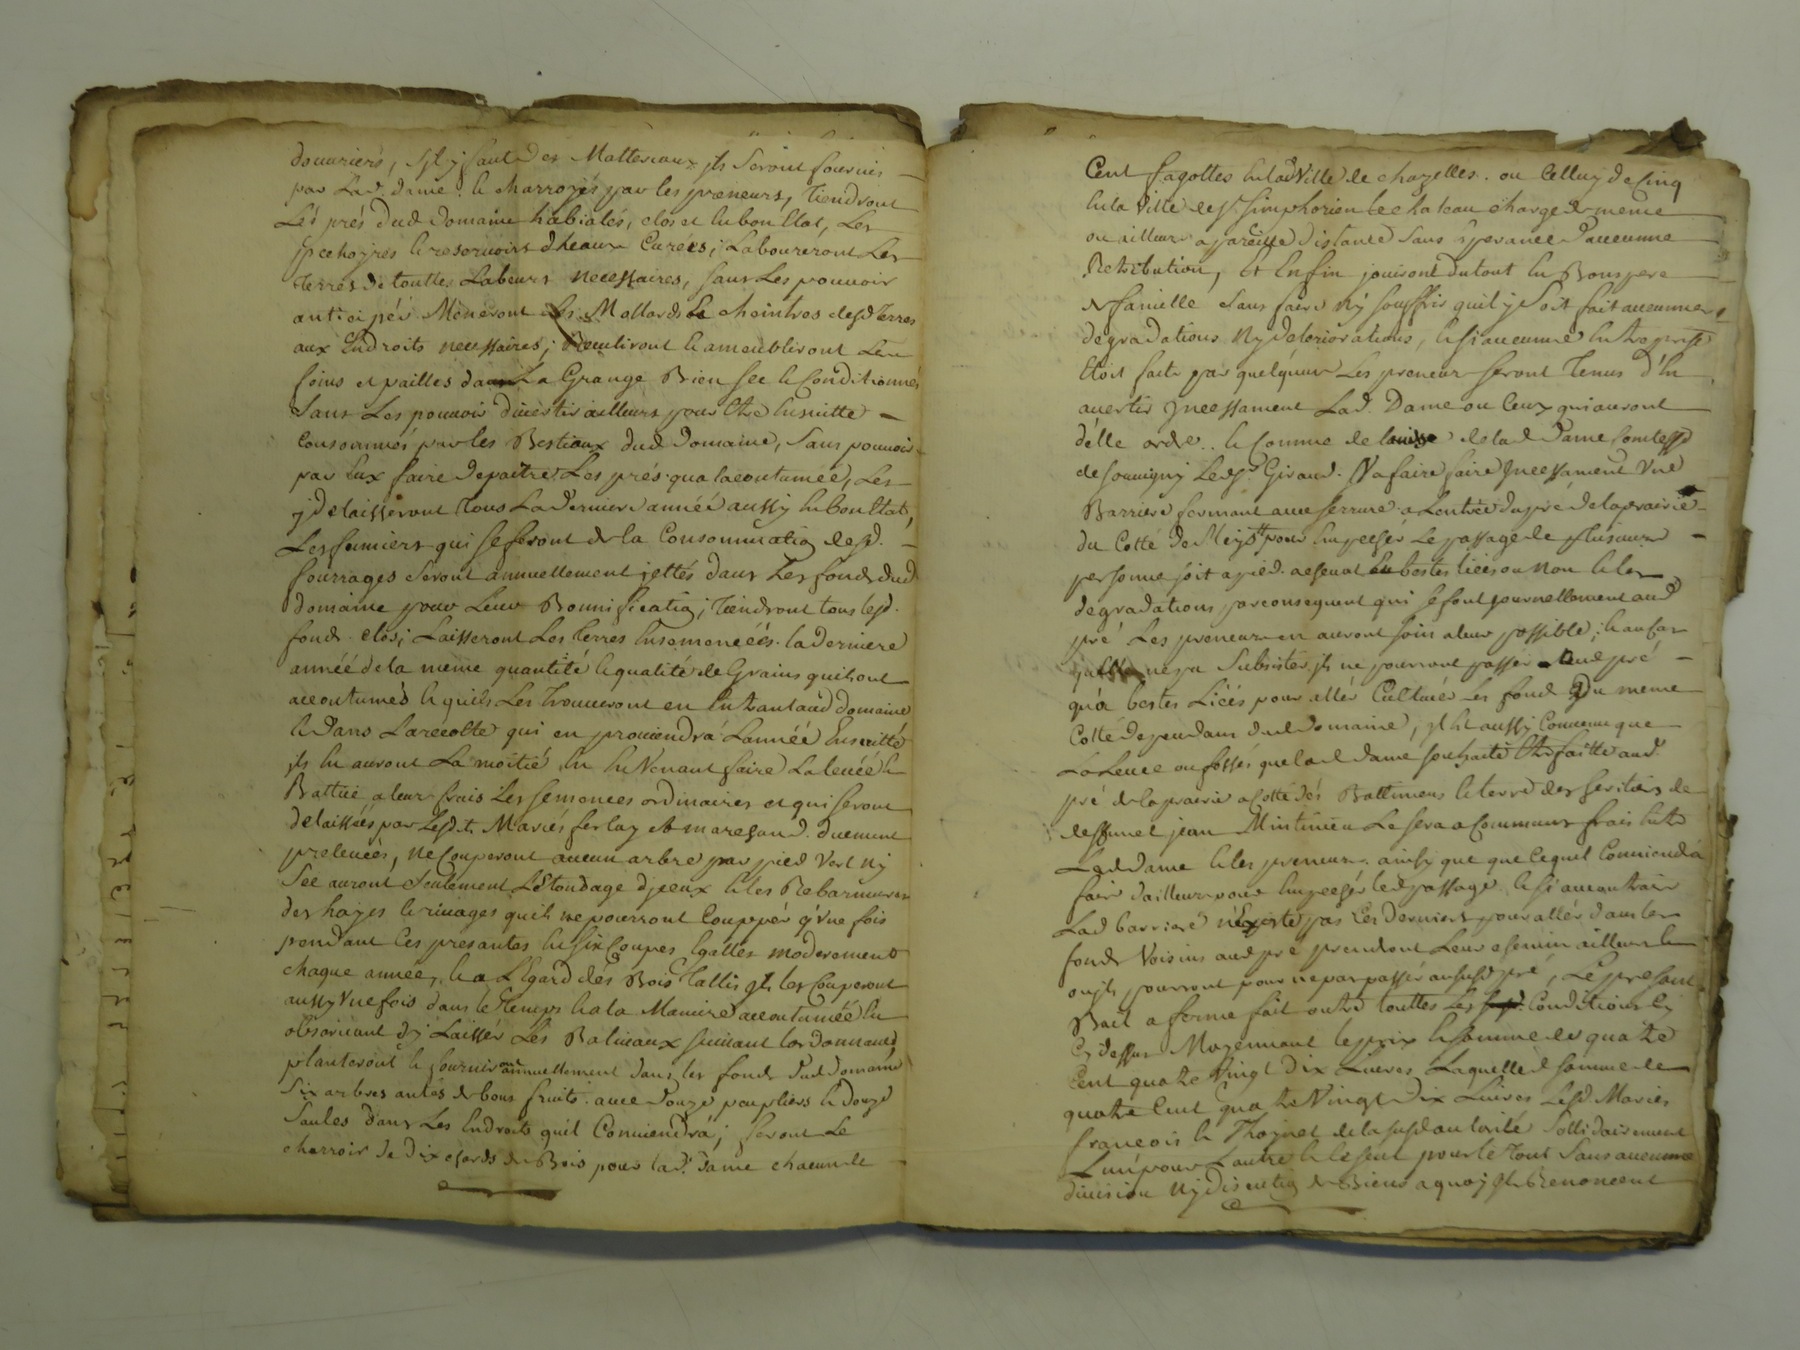 douvriers, s'il y faut des Matteriaux ils seront fournis
par lad. dame & charroyés par les preneurs, Tiendront
Les prés dud domaine habialés, clos et en bon Etat, Les
pechoyres & reservoirs d'heaux Curées; Laboureront Les
Terres de touttes Labeurs necessaires, sans Les pouvoir
anticipér Méneront Les Mollards & cheintres desd Terres
aux Endroits necessaires; & ameubliront Les
foins et pailles dans La Grange Bien sec & Conditionnés
Sans Les pouvoir divertir ailleurs pour Etre Ensuitte
Consommés par les Bestiaux dud domaine, Sans pouvoir
par Eux faire depaitre Les prés qua lacoutumée, Les
y delaisseront Tous La derniere année aussy en bon Etat,
Les fumiers qui se feront de la Consommation desd.
fourrages seront annuellement jettés dans Les fonds dud
domaine pour Leur Bonnification; Tiendront tous lesd.
fonds clos; Laisseront Les Terres Ensemencéés la derniere
année de la meme quantité & qualité de Grains quils ont
accoutumés & quils Les trouveront en Entrant aud domaine
& Dans La recolte qui en proviendra Lannéé Ensuitte
ils en auront La moitié en en Venant faire La levéé &
Battue a leur frais Les semences ordinaires et qui seront
delaissées par Lesd. Mariés ferlay et maresand. duement
prelevéés, Ne Couperont aucun arbre par pied Vert Ny
Sec auront seulement L'Etondage d'jeux & les Rebarures
des hayes & rivages quils ne pourront Couppér q'une fois
pendant Les presantes en six Coupes Egalles moderement
chaque année, & a L'Egard des Bois Taillis ils les Couperont
aussy Une fois dans le Temps & a la Maniere accoutuméé en
observant dy Laissér Les Baliveaux suivant lordonnance
planteront & fourniront annuellement dans les fonds dud domaine
Six arbres antés de bons fruits avec douze peupliers & douze
Saules dans Les Endroits quil Conviendra; feront Le
charroir de dix chards de Bois pour lad. dame chacun de
Cent fagottes en lad Ville de chazelles ou Celluy de Cinq
en la Ville de St Simphorien le chateau chargé de meme
ou ailleurs a pareille distance sans Esperance d'aucunne
Retribution, Et Enfin jouiront du tout En Bons pere
de famille sans faire Ny souffrir quil y soit fait aucunnes
degradations Ny deteriorations, & si aucunne Entreprise
Etoit faite par quelquun Les preneurs seront Tenus d'En
avertir Incessament Lad. Dame ou Ceux qui auront
d'élle ordre & Comme de lad dame Comtesse
de souvigny Led Sr. Giraud Va faire faire Incessament Une
Barriere fermant avec serrure a Lentrée du pré de la prairie
du Cotté de Meys pour Empechér Le passage de plusieurs
personne soit a pied a cheval ou bestes liéés ou Non & les
degradations par consequent qui se font journellement aud
pré Les preneurs en auront soin a leur possible; & au Cas
ne pu Subsister, ils ne pourront passér aud pré
qu'a bestes Liéés pour allér Cultivér Les fonds du meme
Cotté dependans dud domaine, il est aussy Convenu que
La Levée ou fossés que lad dame souhaite Etre faitte aud
pré de la prairie a Cotté dés Battimens & terre des heritiers de
deffunct jean Minthieu Le sera a Communs frais Entre
Lad dame & les preneurs ainsy que que Cequil Conviendra
faire dailleurs pour Empechér led passage & si au contraire
Lad barriere n'Existe pas Les derniers pour allér dans les
fonds Voisins aud pré prendront Leur chemin ailleurs &
ou ils pourront pour ne pas passer au susd pré, Le present
Bail a ferme fait outre touttes Les Conditions Cy
Cy dessus Moyennant le prix & somme de quatre
Cent quatre Vingt Dix Livres Laquelled somme de
quatre Cent quatre Vingt Dix Livres Lesd Mariés
françois & Thoynet de la susd autorité Sollidairement
L'un pour Lautre & le seul pour le Tout Sans aucunne
division Ny discution de Biens a quoy ils Renoncent